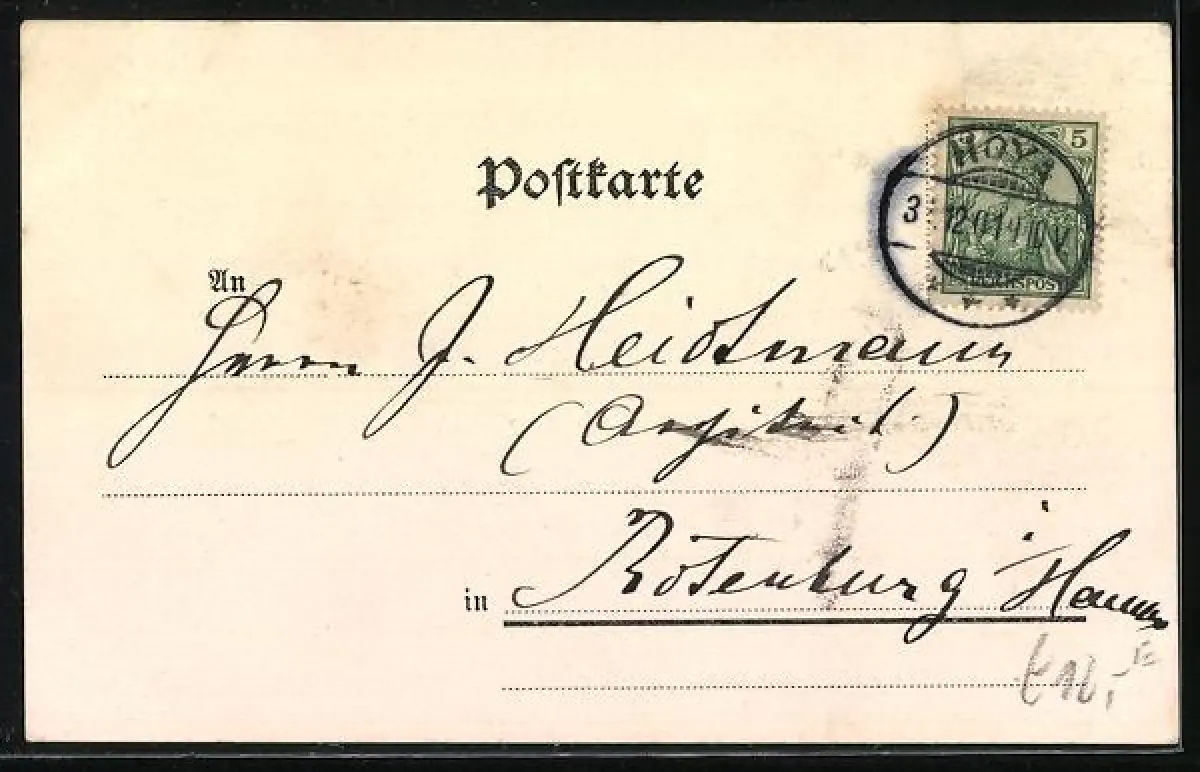 Postkarte
5
HOYA
3 12 01 9-10 V
REICHSPOST
An
Herrn J. Heidtmann
in Rotenburg i. Hannov.